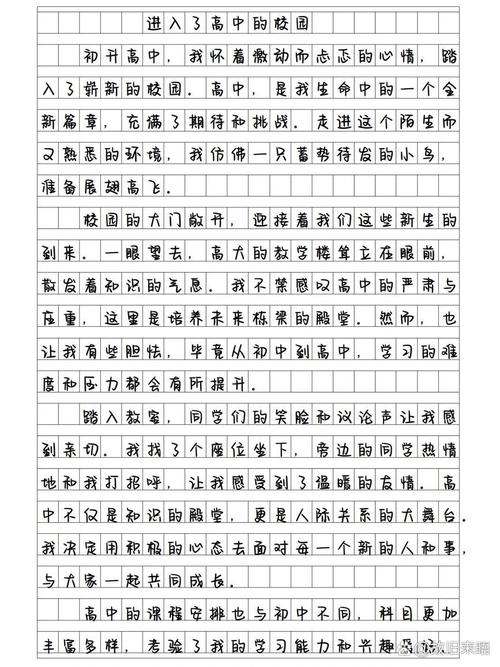 进入了高中的校园
初升高中,我怀着激动而忐忑的心情,踏
入了崭新的校园.高中,是我生命中的一个全
新篇章,充满了期待和挑战.走进这个陌生而
又熟悉的环境,我仿佛一只蓄势待发的小鸟,
准备展翅高飞.
校园的大门敞开,迎接着我们这些新生的
到来.一眼望去,高大的教学楼耸立在眼前,
散发着知识的气息.我不禁感叹高中的严肃与
庄重,这里是培养未来栋梁的殿堂.然而,也
让我有些胆怯,毕竟从初中到高中,学习的难
度和压力都会有所提升.
踏入教室,同学们的笑脸和议论声让我感
到亲切.我找了个座位坐下,旁边的同学热情
地和我打招呼,让我感受到了温暖的友情.高
中不仅是知识的殿堂,更是人际关系的大舞台.
我决定用积极的心态去面对每一个新的人和事,
与大家一起共同成长.
高中的课程安排也与初中不同,科目更加
丰富多样,考验了我的学习能力和兴趣